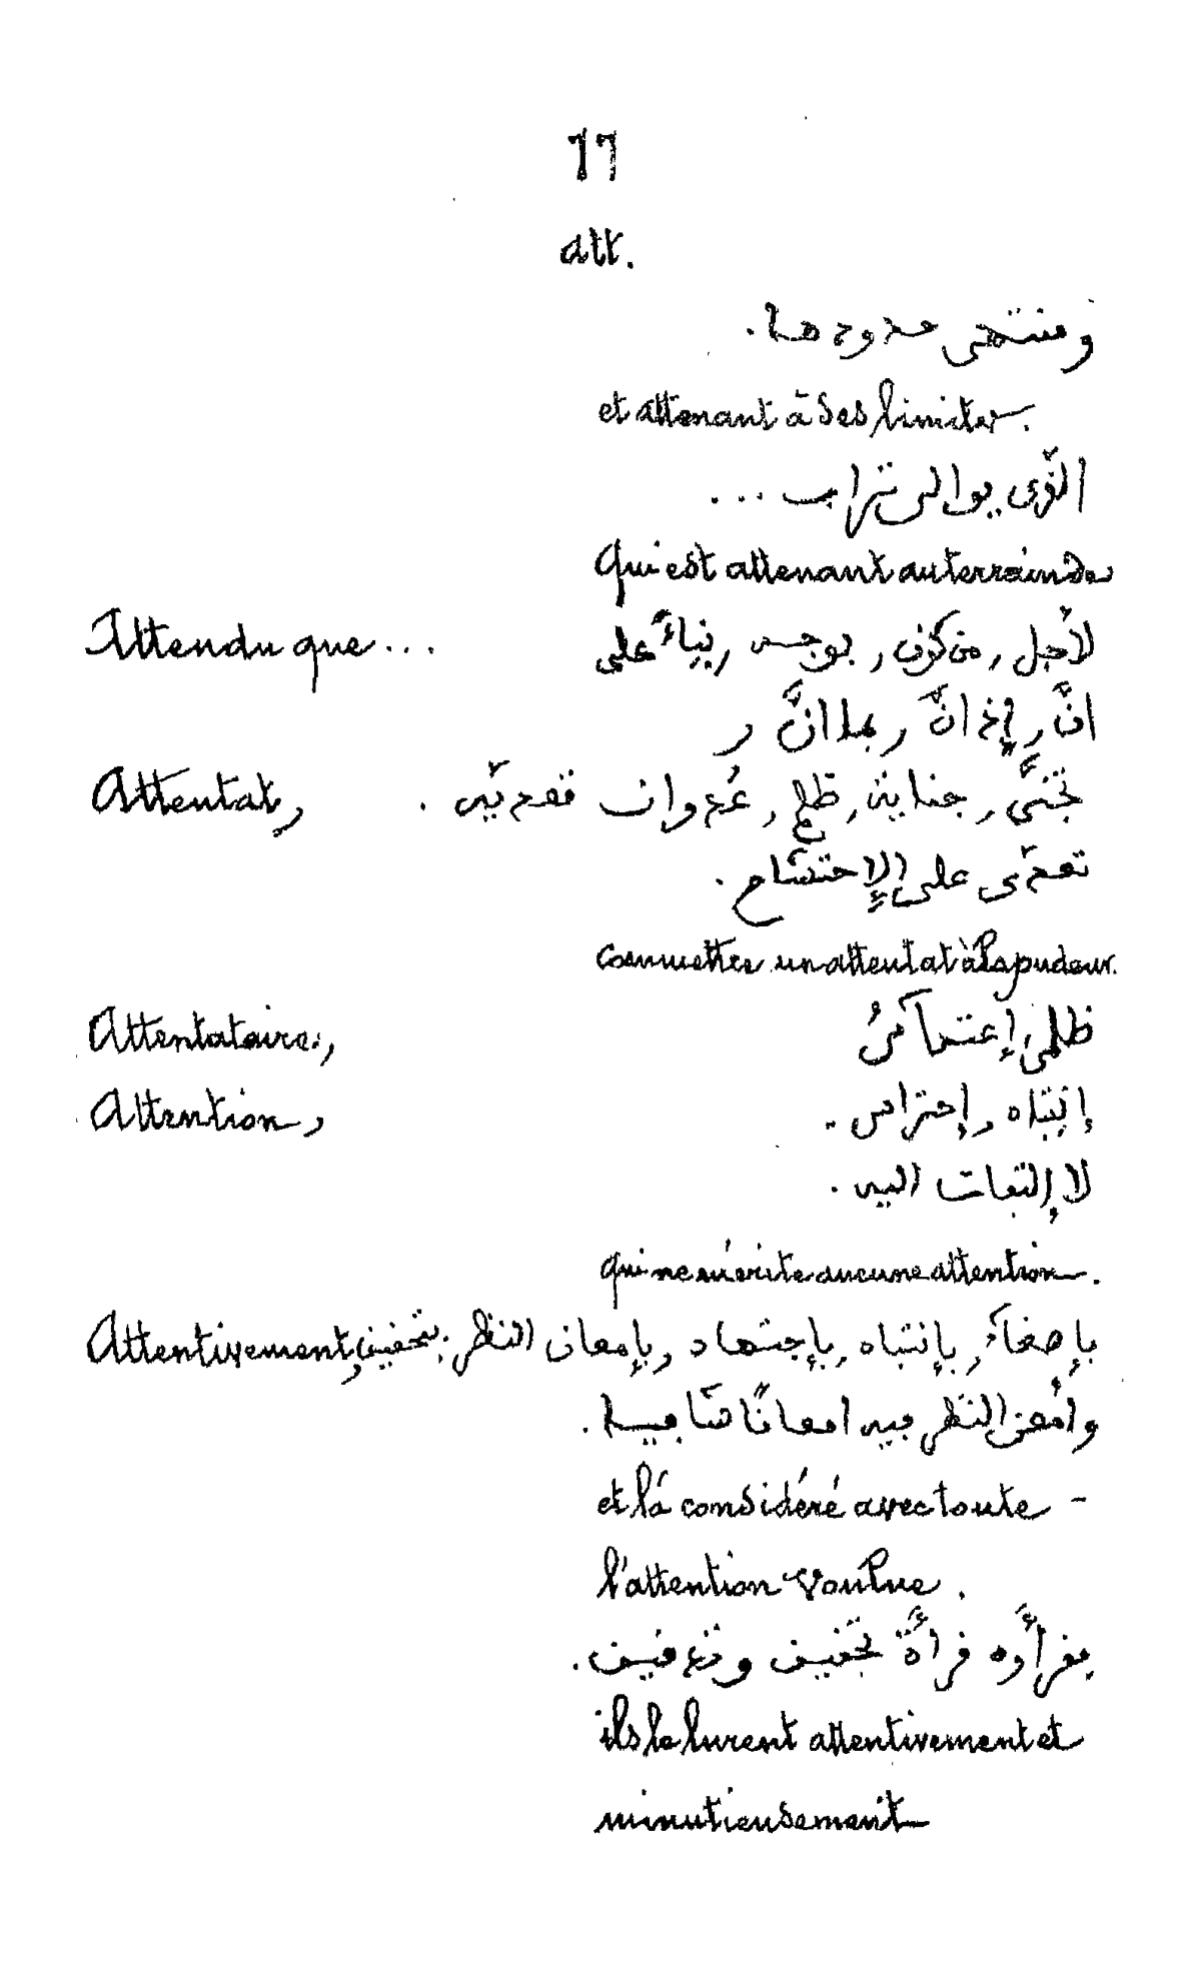 77
att.
ومنتهى حدودها.
et attenant à ses limites.
الذّى يوالى تراب ...
qui est attenant au terrain de
Attendu que ... لأجل, من كون, بوجه, بناءً على
انّ, إذ انّ, بما انّ,
Attentat, تجنّى, جناية, ظلم, عُدوان تعدّى.
تعدّى على الإحتشام.
commettre un attentat à la pudeur.
Attentataire, ظلمى,
Attention, إنتباه, إحتراس.
لا إلتفات اليه.
qui ne mérite aucune attention.
Attentivement, بإصغاء, بإنتباه, بإجتهاد, بإمعان النظر, بتحقيق
وأمعن النظر فيه امعانًا شافيا.
et l'a considéré avec toute -
l'attention voulue.
فقرأوه قرأة تحقيق وتدقيق.
ils le lurent attentivement et
minutieusement